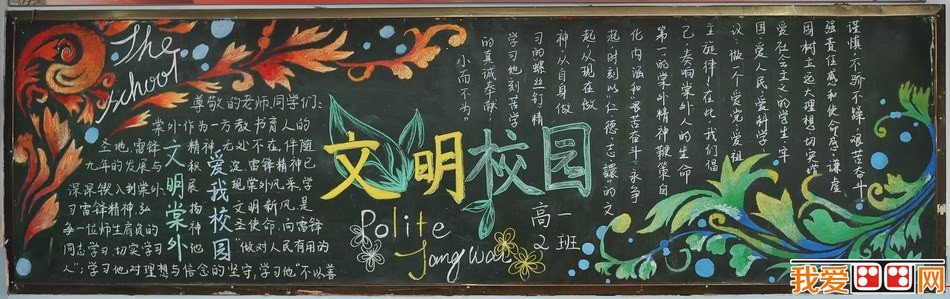 The
School
尊敬的老师、同学们：
棠外作为一方教书育人的
圣地，雷锋精神，无处不在，伴随
九年的发展与积淀，雷锋精神已
深深镶入到棠外，展现棠外风采，学
习雷锋精神，弘扬文明新风是
每一位师生肩负的神圣使命，向雷锋
同志学习，切实学习他"做对人民有用的
人"；学习他对理想与信念的坚守，学习他"不以善
小而不为"
的真诚奉献，
学习他刻苦学
习的螺丝钉精
神，从自身做
起，从现在做
起，时刻以"仁德、志让"的文
化内涵和"艰苦奋斗，永争
第一"的棠外精神鞭策自
己，奏响棠外人的生命
主旋律！在此，我们倡
议：做一个爱党、爱祖
国、爱人民、爱科学、
爱社会主义的学生，牢
固树立远大理想，切实增
强责任感和使命感，谦虚
谨慎，不骄不躁，艰苦奋斗，
文明棠外
爱我校园
文明校园
Polite
Tang Wai
高一
2班
我爱网